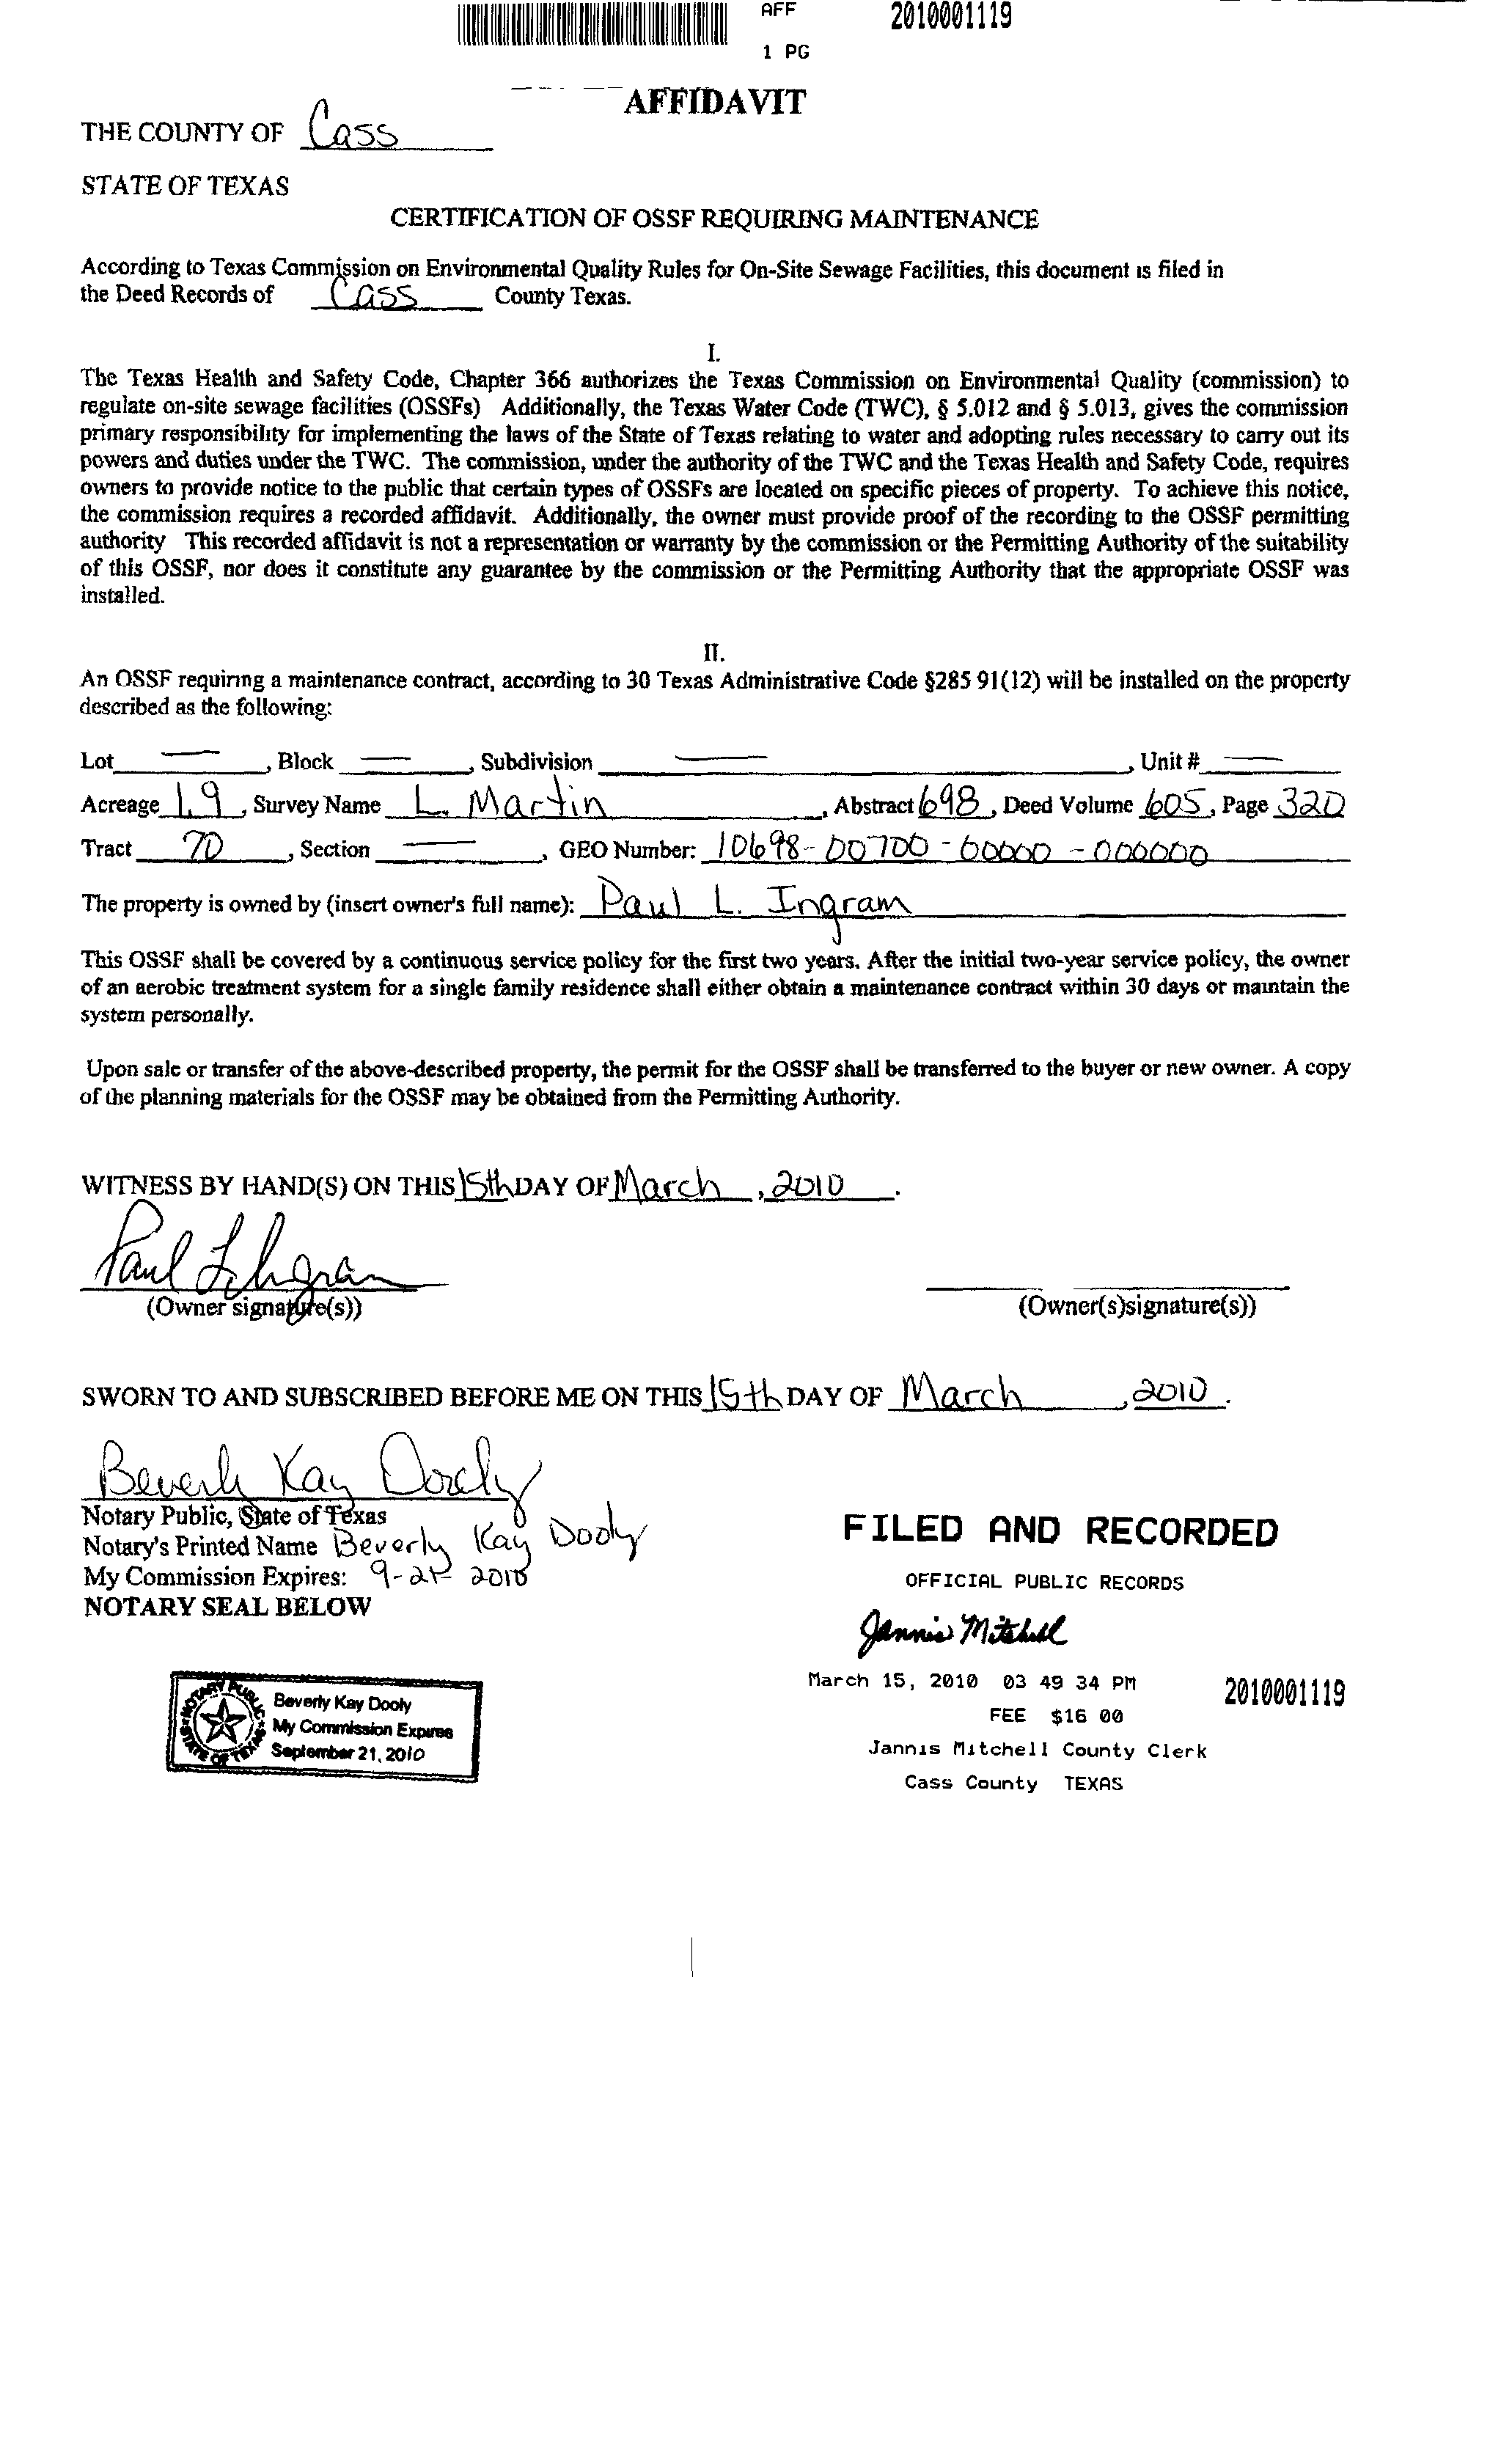 AFF 2010001119
1 PG
AFFIDAVIT
THE COUNTY OF Cass
STATE OF TEXAS
CERTIFICATION OF OSSF REQUIRING MAINTENANCE
According to Texas Commission on Environmental Quality Rules for On-Site Sewage Facilities, this document is filed in
the Deed Records of Cass County Texas.
I.
The Texas Health and Safety Code, Chapter 366 authorizes the Texas Commission on Environmental Quality (commission) to
regulate on-site sewage facilities (OSSFs) Additionally, the Texas Water Code (TWC), § 5.012 and § 5.013, gives the commission
primary responsibility for implementing the laws of the State of Texas relating to water and adopting rules necessary to carry out its
powers and duties under the TWC. The commission, under the authority of the TWC and the Texas Health and Safety Code, requires
owners to provide notice to the public that certain types of OSSFs are located on specific pieces of property. To achieve this notice,
the commission requires a recorded affidavit. Additionally, the owner must provide proof of the recording to the OSSF permitting
authority This recorded affidavit is not a representation or warranty by the commission or the Permitting Authority of the suitability
of this OSSF, nor does it constitute any guarantee by the commission or the Permitting Authority that the appropriate OSSF was
installed.
II.
An OSSF requiring a maintenance contract, according to 30 Texas Administrative Code §285 91(12) will be installed on the property
described as the following:
Lot — , Block — , Subdivision — , Unit # —
Acreage 1.9 , Survey Name L. Martin , Abstract 698 , Deed Volume 605 , Page 320
Tract 70 , Section — , GEO Number: 10698-00700-00000-000000
The property is owned by (insert owner's full name): Paul L. Ingram
This OSSF shall be covered by a continuous service policy for the first two years. After the initial two-year service policy, the owner
of an aerobic treatment system for a single family residence shall either obtain a maintenance contract within 30 days or maintain the
system personally.
Upon sale or transfer of the above-described property, the permit for the OSSF shall be transferred to the buyer or new owner. A copy
of the planning materials for the OSSF may be obtained from the Permitting Authority.
WITNESS BY HAND(S) ON THIS 15th DAY OF March , 2010 .
Paul L Ingram
(Owner signature(s)) (Owner(s)signature(s))
SWORN TO AND SUBSCRIBED BEFORE ME ON THIS 15th DAY OF March , 2010 .
Beverly Kay Dooly
Notary Public, State of Texas
Notary's Printed Name Beverly Kay Dooly
My Commission Expires: 9-21-2010
NOTARY SEAL BELOW
NOTARY PUBLIC
STATE OF TEXAS
Beverly Kay Dooly
My Commission Expires
September 21, 2010
FILED AND RECORDED
OFFICIAL PUBLIC RECORDS
Jannis Mitchell
March 15, 2010 03 49 34 PM
2010001119
FEE $16 00
Jannis Mitchell County Clerk
Cass County TEXAS